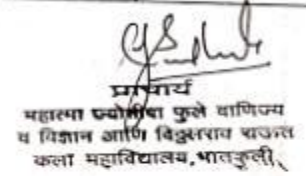 प्राचार्य
महात्मा ज्योतीबा फुले वाणिज्य
व विज्ञान आणि विठ्ठलराव राऊत
कला महाविद्यालय, भातकुली.